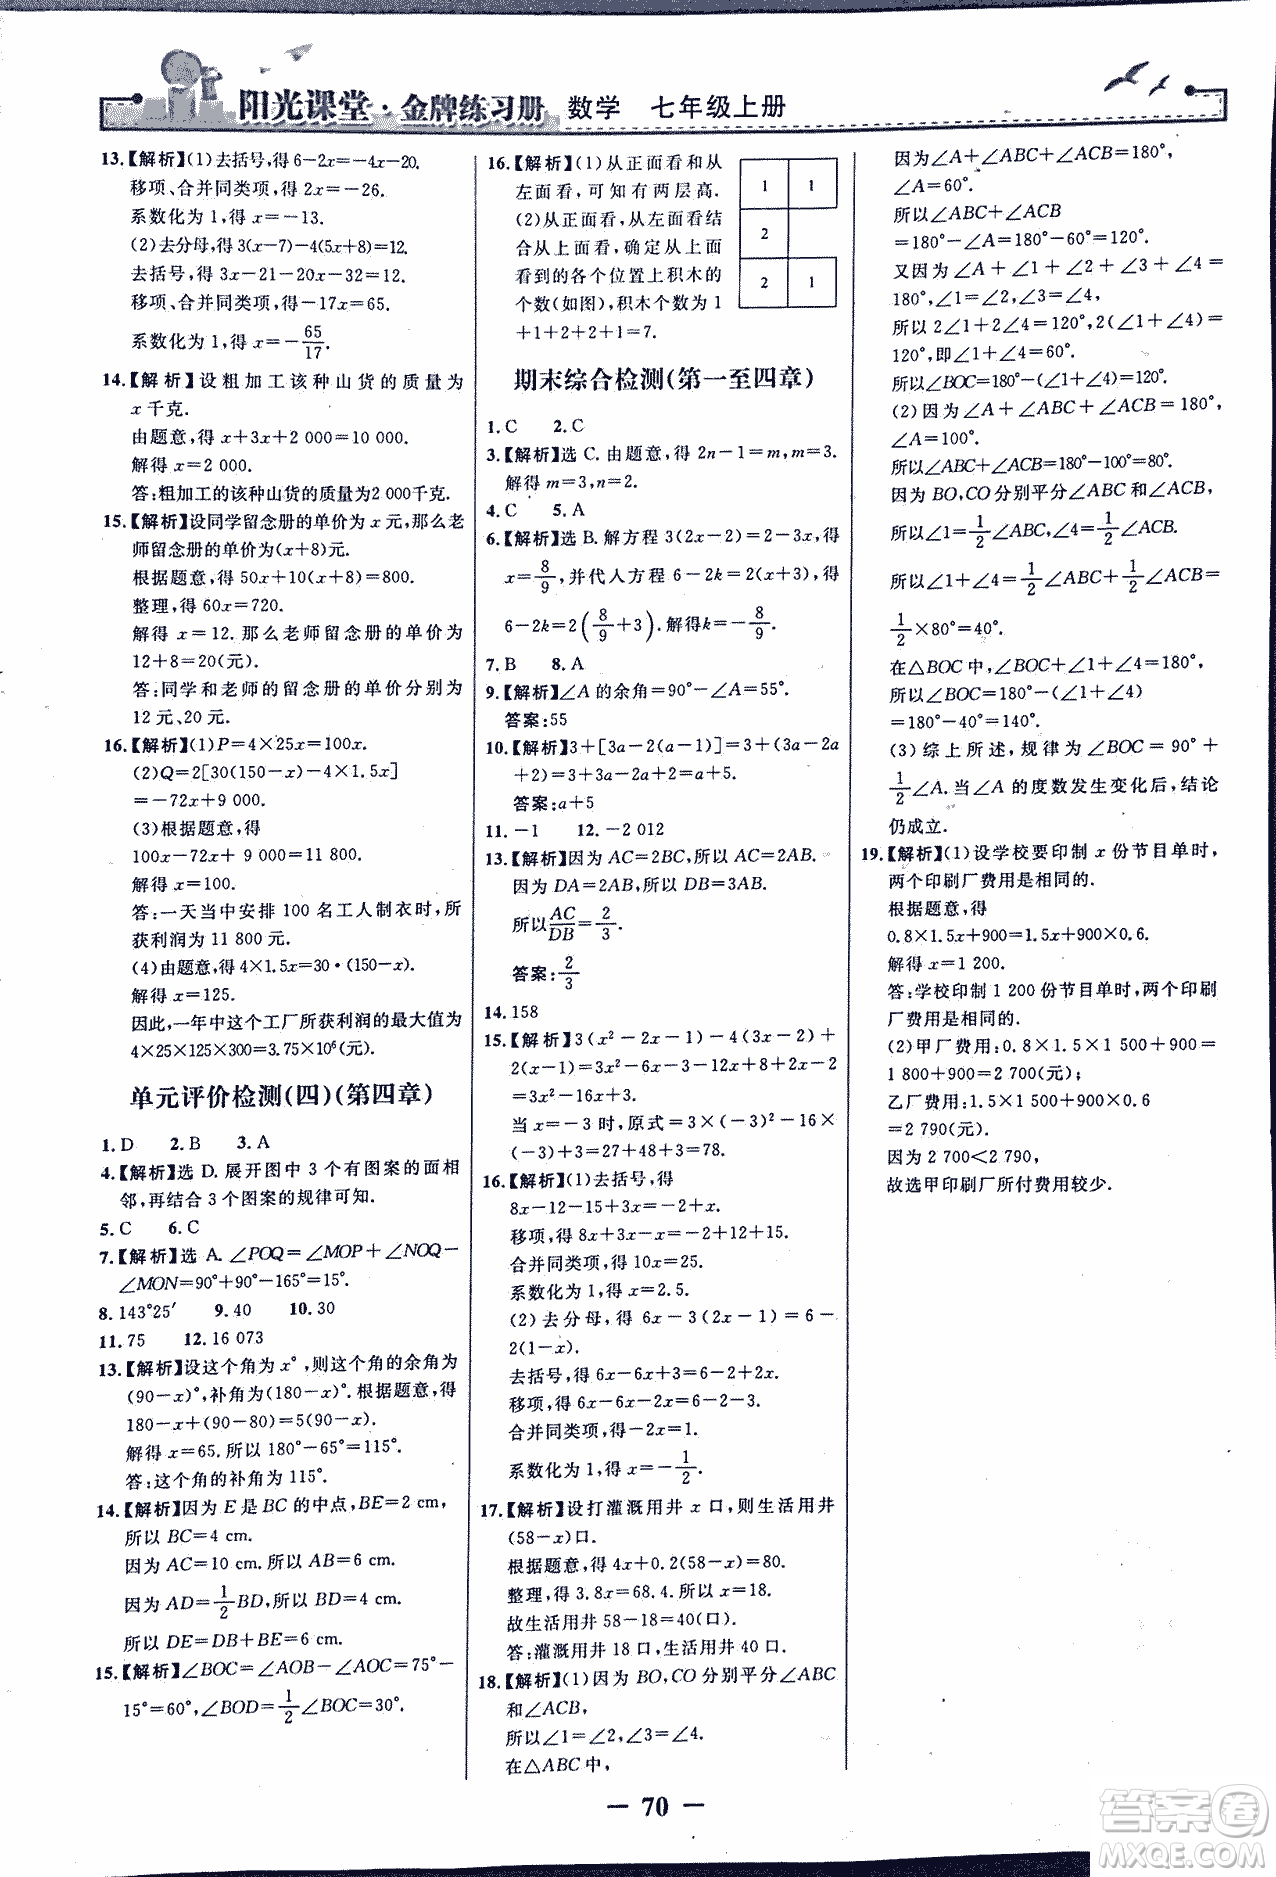 阳光课堂·金牌练习册 数学 七年级上册
13.【解析】(1)去括号,得 6-2x=-4x-20.
移项、合并同类项,得 2x=-26.
系数化为 1,得 x=-13.
(2)去分母,得 3(x-7)-4(5x+8)=12.
去括号,得 3x-21-20x-32=12.
移项、合并同类项,得-17x=65.
系数化为 1,得 x=-65/17.
14.【解析】设粗加工该种山货的质量为
x 千克.
由题意,得 x+3x+2 000=10 000.
解得 x=2 000.
答:粗加工的该种山货的质量为2 000千克.
15.【解析】设同学留念册的单价为 x 元,那么老
师留念册的单价为(x+8)元.
根据题意,得 50x+10(x+8)=800.
整理,得 60x=720.
解得 x=12. 那么老师留念册的单价为
12+8=20(元).
答:同学和老师的留念册的单价分别为
12 元、20 元.
16.【解析】(1)P=4×25x=100x.
(2)Q=2[30(150-x)-4×1.5x]
=-72x+9 000.
(3)根据题意,得
100x-72x+ 9 000=11 800.
解得 x=100.
答:一天当中安排 100 名工人制衣时,所
获利润为 11 800 元.
(4)由题意,得 4×1.5x=30·(150-x).
解得 x=125.
因此,一年中这个工厂所获利润的最大值为
4×25×125×300=3.75×10⁶(元).
单元评价检测(四)(第四章)
1.D 2.B 3.A
4.【解析】选 D. 展开图中 3 个有图案的面相
邻,再结合 3 个图案的规律可知.
5.C 6.C
7.【解析】选 A. ∠POQ=∠MOP+∠NOQ-
∠MON=90°+90°-165°=15°.
8. 143°25′ 9. 40 10. 30
11. 75 12. 16 073
13.【解析】设这个角为 x°,则这个角的余角为
(90-x)°,补角为(180-x)°. 根据题意,得
180-x+(90-80)=5(90-x).
解得 x=65. 所以 180°-65°=115°.
答:这个角的补角为 115°.
14.【解析】因为 E 是 BC 的中点,BE=2 cm,
所以 BC=4 cm.
因为 AC=10 cm. 所以 AB=6 cm.
因为 AD=1/2BD,所以 BD=4 cm.
所以 DE=DB+BE=6 cm.
15.【解析】∠BOC=∠AOB-∠AOC=75°-
15°=60°,∠BOD=1/2∠BOC=30°.
16.【解析】(1)从正面看和从
左面看,可知有两层高.
(2)从正面看,从左面看结
合从上面看,确定从上面
看到的各个位置上积木的
个数(如图),积木个数为 1
+1+2+2+1=7.
1 1
2
2 1
期末综合检测(第一至四章)
1. C 2. C
3.【解析】选 C. 由题意,得 2n-1=m,m=3.
解得 m=3,n=2.
4. C 5. A
6.【解析】选 B. 解方程 3(2x-2)=2-3x,得
x=8/9,并代人方程 6-2k=2(x+3),得
6-2k=2(8/9+3).解得k=-8/9.
7. B 8. A
9.【解析】∠A 的余角=90°-∠A=55°.
答案:55
10.【解析】3+[3a-2(a-1)]=3+(3a-2a
+2)=3+3a-2a+2=a+5.
答案:a+5
11. -1 12. -2 012
13.【解析】因为 AC=2BC,所以 AC=2AB.
因为 DA=2AB,所以 DB=3AB.
所以AC/DB=2/3.
答案:2/3
14. 158
15.【解析】3(x²-2x-1)-4(3x-2)+
2(x-1)=3x²-6x-3-12x+8+2x-2
=3x²-16x+3.
当 x=-3 时,原式=3×(-3)²-16×
(-3)+3=27+48+3=78.
16.【解析】(1)去括号,得
8x-12-15+3=-2+x.
移项,得 8x+x=-2+12+15.
合并同类项,得 10x=25.
系数化为 1,得 x=2.5.
(2)去分母,得 6x-3(2x-1)=6-
2(1-x).
去括号,得 6x-6x+3=6-2+2x.
移项,得 6x-6x-2x=6-2-3.
合并同类项,得-2x=1.
系数化为 1,得 x=-1/2.
17.【解析】设打灌溉用井 x 口,则生活用井
(58-x)口.
根据题意,得 4x+0.2(58-x)=80.
整理,得 3.8x=68.4. 所以 x=18.
故生活用井 58-18=40(口).
答:灌溉用井 18 口,生活用井 40 口.
18.【解析】(1)因为 BO,CO 分别平分∠ABC
和∠ACB,
所以∠1=∠2,∠3=∠4.
在△ABC 中,
因为∠A+∠ABC+∠ACB=180°,
∠A=60°.
所以∠ABC+∠ACB
=180°-∠A=180°-60°=120°.
又因为∠A+∠1+∠2+∠3+∠4=
180°,∠1=∠2,∠3=∠4,
所以 2∠1+2∠4=120°,2(∠1+∠4)=
120°,即∠1+∠4=60°.
所以∠BOC=180°-(∠1+∠4)=120°.
(2)因为∠A+∠ABC+∠ACB=180°,
∠A=100°.
所以∠ABC+∠ACB=180°-100°=80°.
因为 BO,CO 分别平分∠ABC 和∠ACB,
所以∠1=1/2∠ABC,∠4=1/2∠ACB.
所以∠1+∠4=1/2∠ABC+1/2∠ACB=
1/2×80°=40°.
在△BOC 中∠1+∠4+∠BOC=180°,
所以∠BOC=180°-(∠1+∠4)
=180°-40°=140°.
(3)综上所述,规律为∠BOC=90°+
1/2∠A. 当∠A 的度数发生变化后,结论
仍成立.
19.【解析】(1)设学校要印制 x 份节目单时,
两个印刷厂费用是相同的.
根据题意,得
0.8×1.5x+900=1.5x+900×0.6.
解得 x=1 200.
答:学校印制 1 200 份节目单时,两个印刷
厂费用是相同的.
(2)甲厂费用:0.8×1.5×1 500+900=
1 800+900=2 700(元);
乙厂费用:1.5×1 500+900×0.6
=2 790(元).
因为 2 700<2 790,
故选甲印刷厂所付费用较少.
— 70 —
答案卷
MXQE.COM